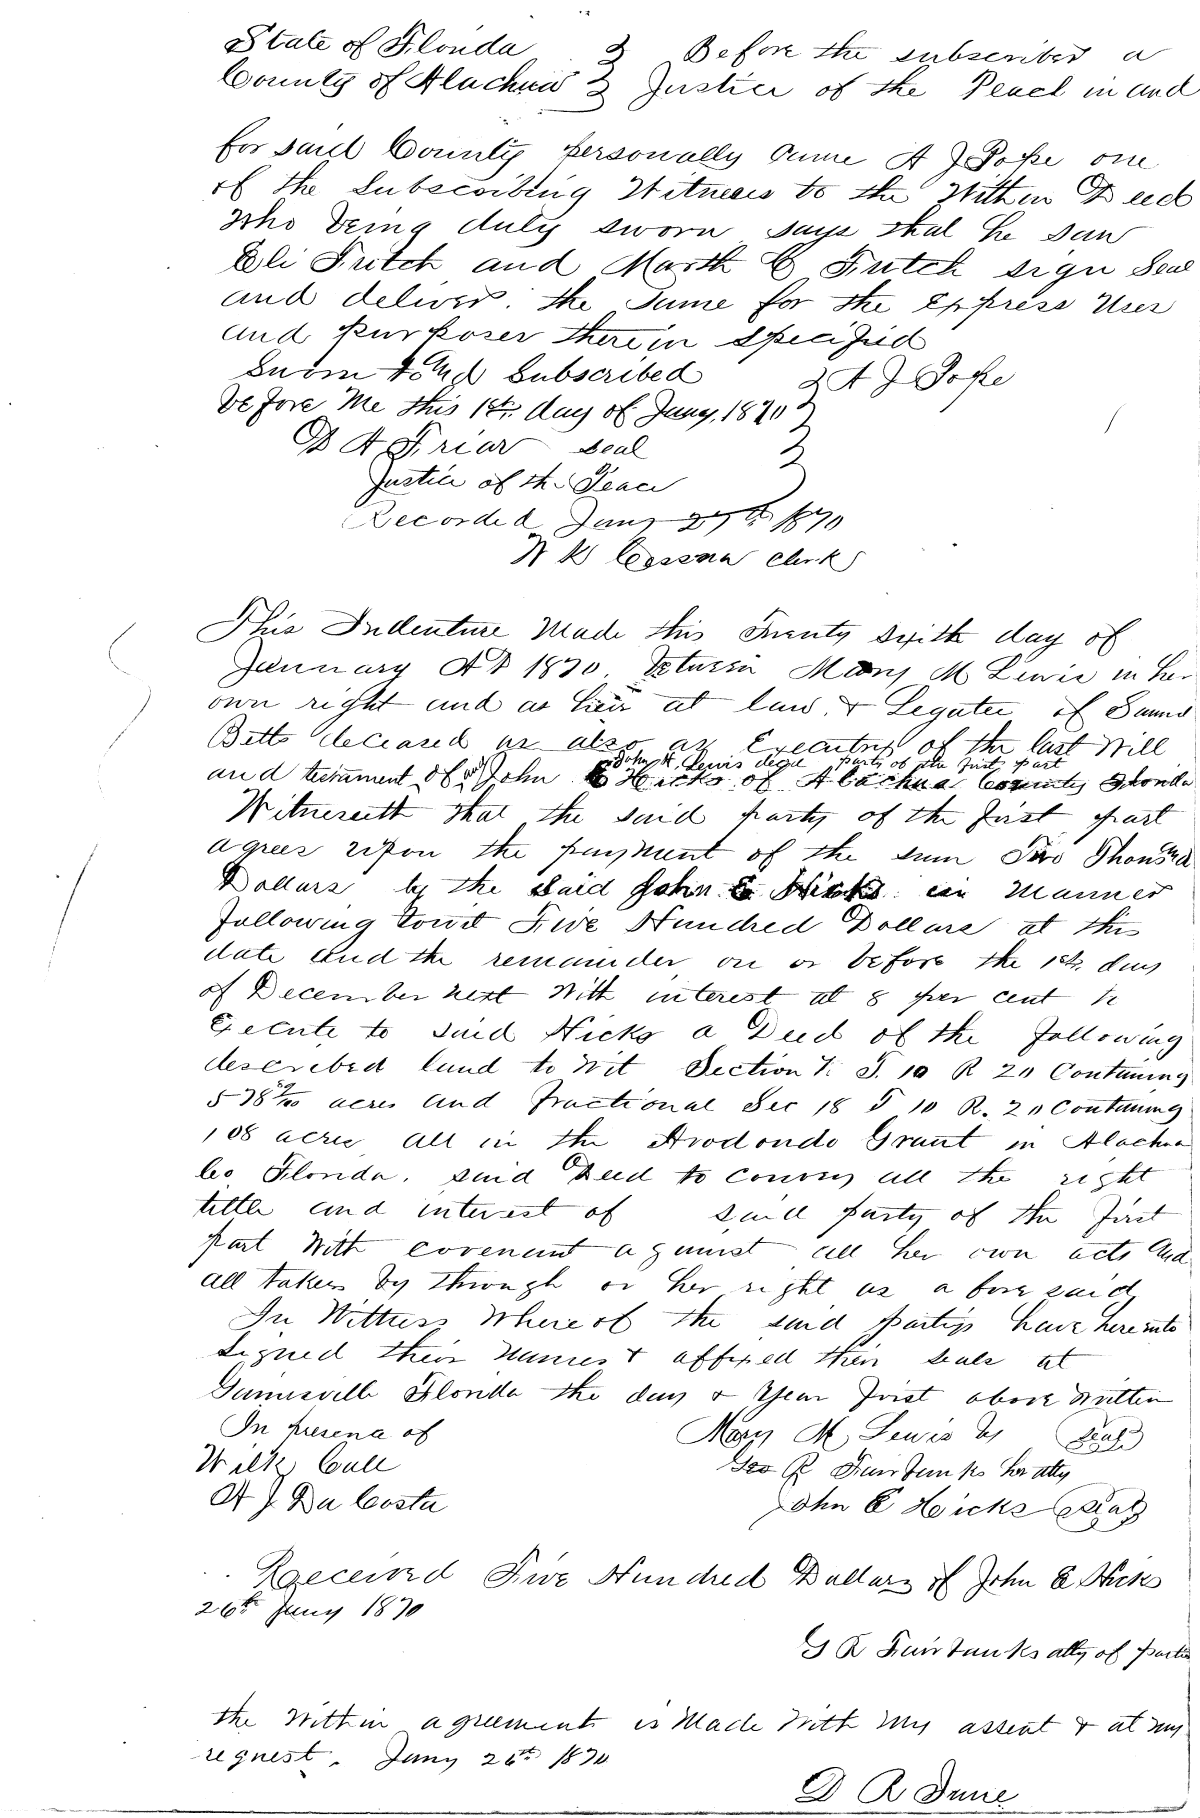 State of Florida } Before the subscribed a
County of Alachua } Justice of the Peace in and
for said County personally Came A J Pope one
of the Subscribing Witness to the Within Deed
Who being duly sworn says that he saw
Eli Futch and Marth C Futch sign Seal
and deliver the Same for the Express Uses
and purposes therein specified
Sworn to and Subscribed } A J Pope
before Me this 1st day of Jany, 1870 }
D A Friar Seal
Justice of the Peace
Recorded Jany 27th 1870
Clerk
This Indenture Made this Twenty sixth day of
January AD 1870 between Mary M Lewis in her
own right and as heir at law & Legatee of Saml
Betts deceased as also as Executrix of the last Will
John R. Lewis decd parts of the first part
and testament of and John E Hicks of Alachua County Florida
Witnesseth that the said party of the first part
agrees upon the payment of the sum Two Thousand
Dollars by the said John E Hicks in Manner
following towit Five Hundred Dollars at this
date and the remainder on or before the 1st day
of December next With interest at 8 per cent to
Execute to said Hicks a Deed of the following
described land to Wit Section 7. T. 10 R 20 Containing
578 acres and fractional Sec 18 T 10 R. 20 Containing
108 acres all in the Arodondo Grant in Alachua
Co Florida. said Deed to Convey all the right
title and interest of said party of the First
part With covenant against all her own acts and
all takers by through or her right as a fore said
In Witness Where of the said partys have hereinto
signed their Names & affixed their seals at
Gainesville Florida the day & Year first above written
In presence of Mary M Lewis by Seal
Wilk Call Geo R Fairbanks her atty
A J Da Costa John E Hicks Seal
Received Five Hundred Dollars of John E Hicks
26th Jany 1870
G R Fairbanks atty of parties
the Within agreement is Made With My assent & at my
request. Jany 26th 1870
D R